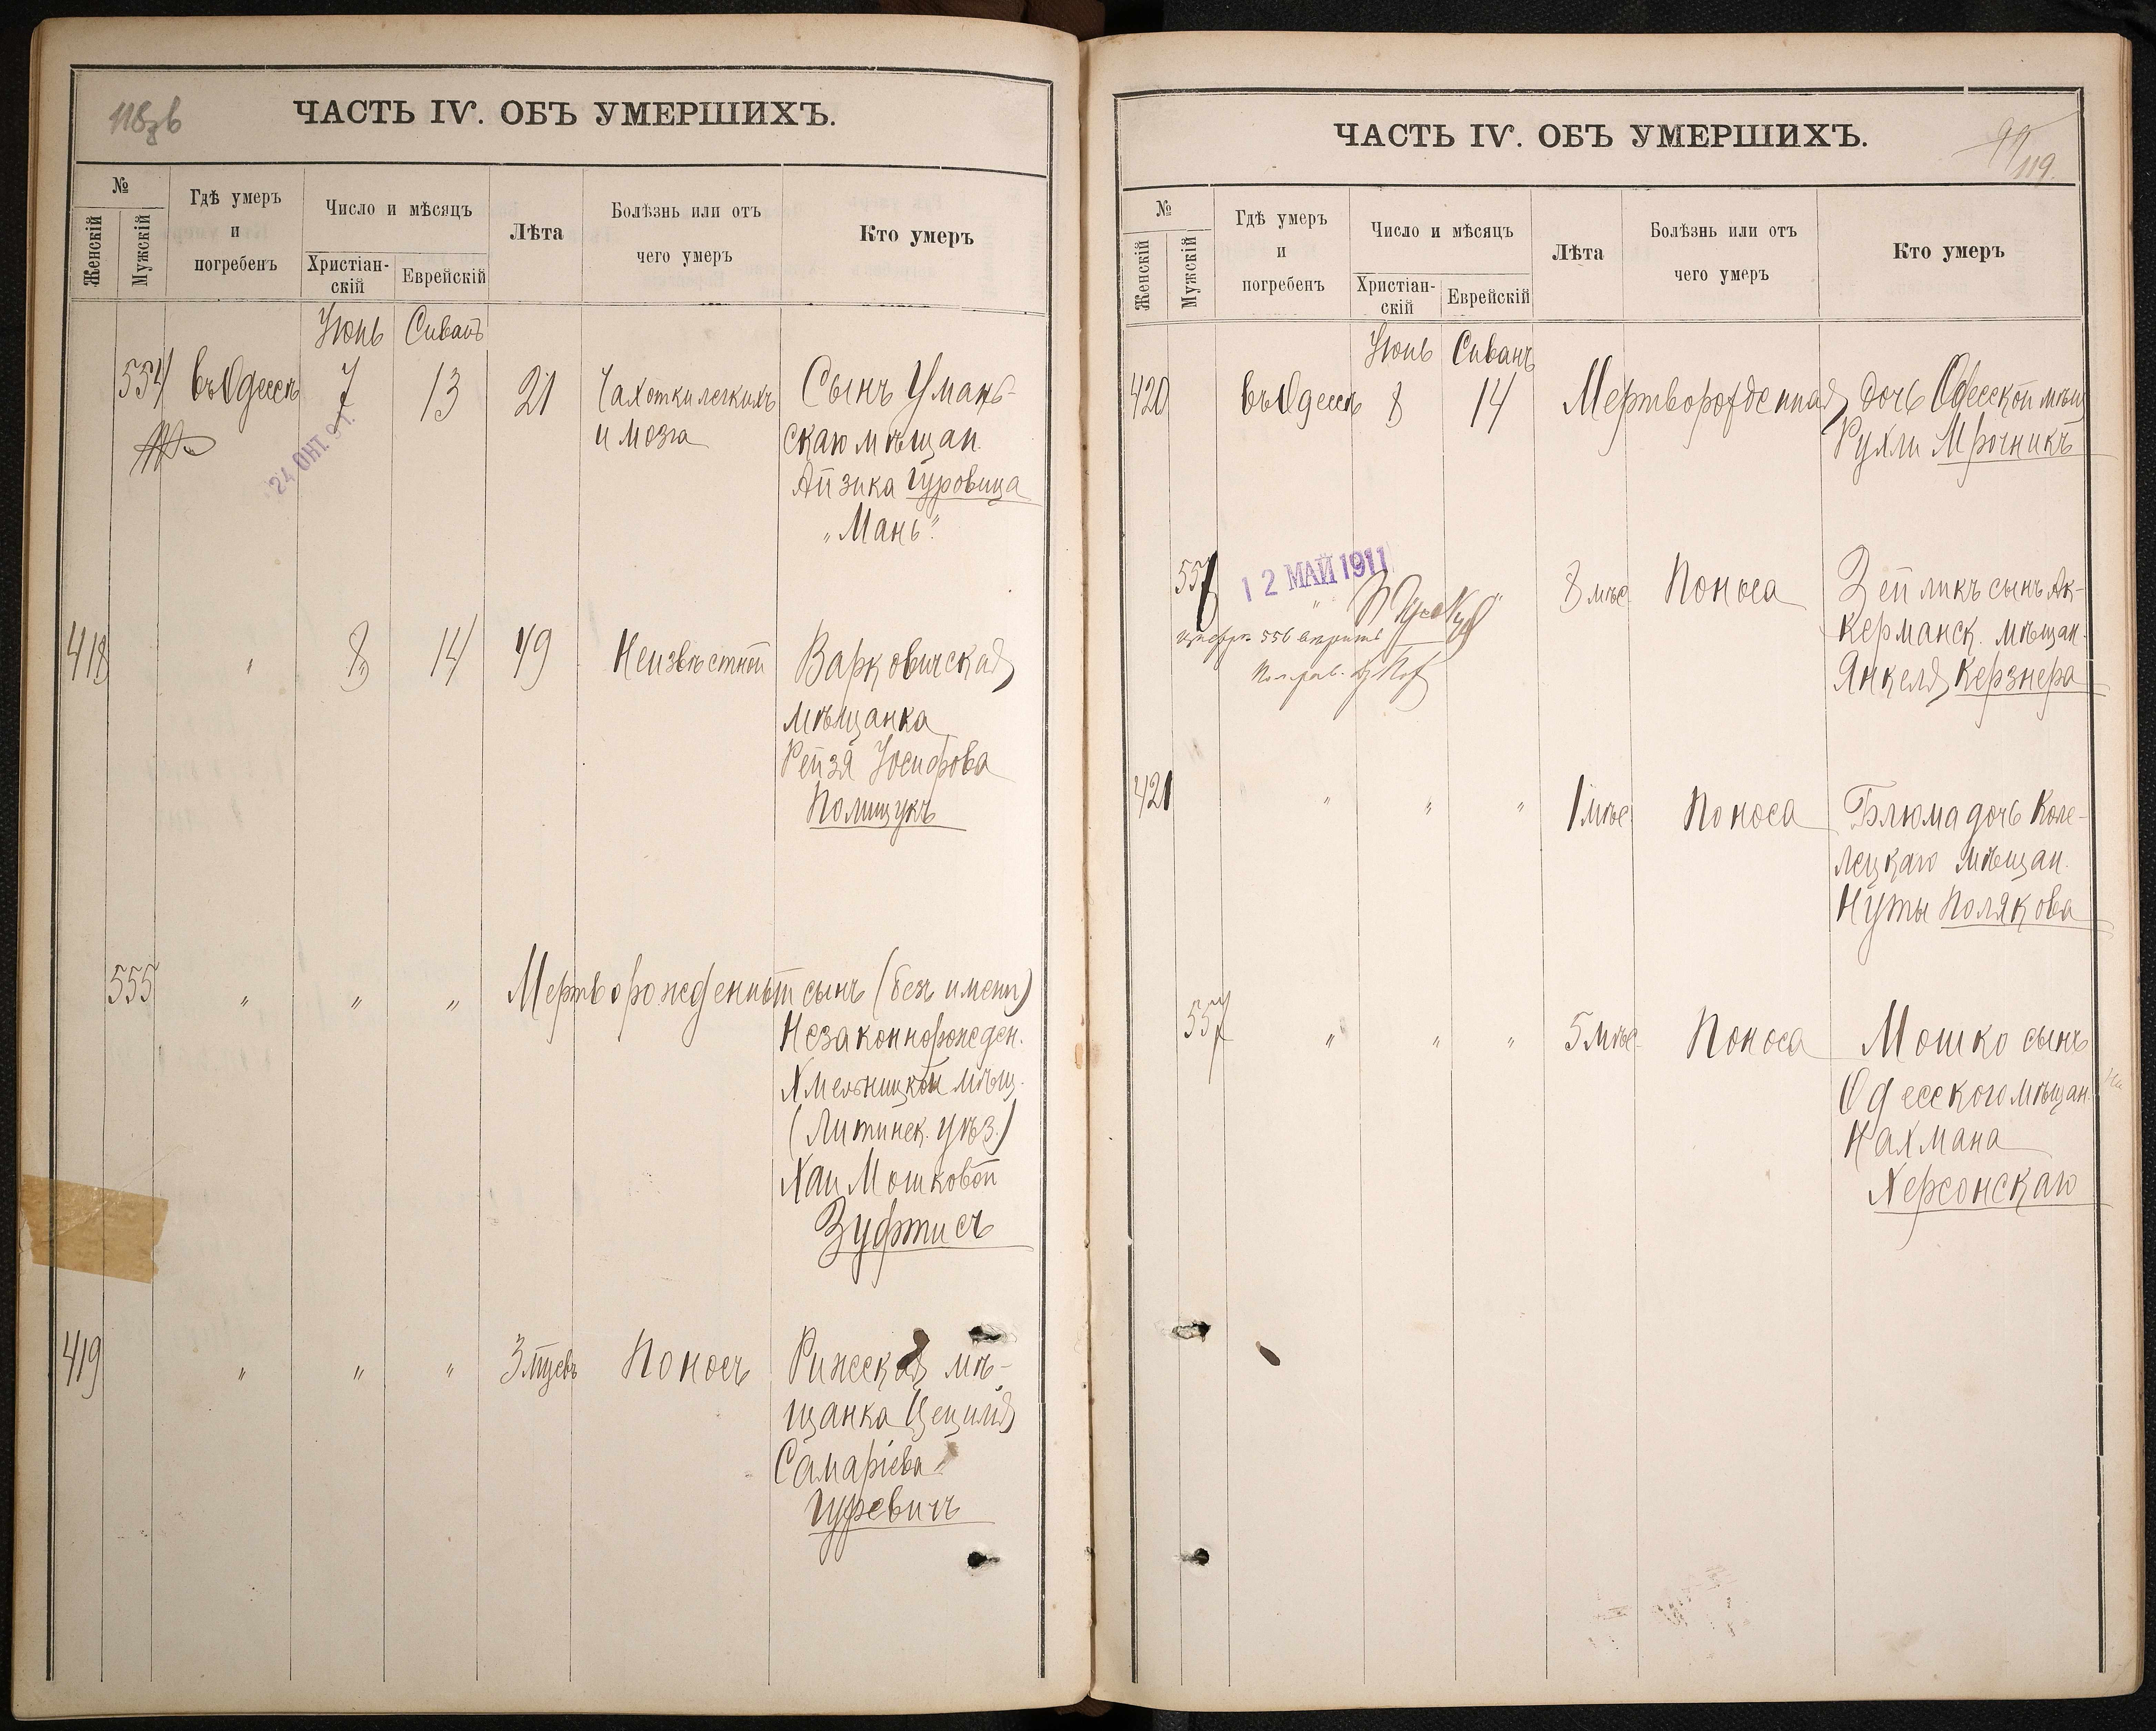 ЧАСТЬ IV. ОБЪ УМЕРШИХЪ.
№
Женскій
Мужскій
Гдѣ умеръ
и
погребенъ
Число и мѣсяцъ
Христіан-
скій
Еврейскій
Лѣта
Болѣзнь или отъ
чего умеръ
Кто умеръ
Іюнь Сиванъ
554 въ Одессѣ 7 13 21 Чахотки легкихъ Сынъ Уман-
и мозга скаго мѣщан.
24 ОКТ. 91.
Айзика Гуровица
„Мань".
418 " 8 14 49 Неизвѣстной Варковичская
мѣщанка
Рейзя Іосифова
Полищукъ
555 " " " Мертворожденный сынъ (безъ имени)
Незаконнорожден.
Хмельницкой мѣщ.
(Литинск. уѣз.)
Хаи Мошковой
Зуфтисъ
419 " " " 3 Поносъ Рижская мѣ-
щанка Цецилія
Самаріева
Гуревичъ
ЧАСТЬ IV. ОБЪ УМЕРШИХЪ.
99
119.
№
Женскій
Мужскій
Гдѣ умеръ
и
погребенъ
Число и мѣсяцъ
Христіан-
скій
Еврейскій
Лѣта
Болѣзнь или отъ
чего умеръ
Кто умеръ
Іюнь Сиванъ
420 въ Одессѣ 8 14 Мертворожденная дочь Одесской мѣщ
Рухли Мрочникъ
12 МАЙ 1911
556 " 8 мѣс. Поноса Зейликъ сынъ Ак-
556 керманск. мѣщан.
Янкеля Керзнера
421 " " " 1 мѣс. Поноса Блюма дочь Коле-
лецкаго мѣщан.
Нуты Полякова
557 " " " 5 мѣс. Поноса Мошко сынъ
Одесского мѣщан.
Нахмана
Херсонскаго